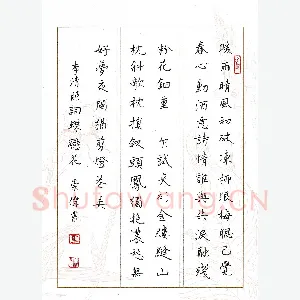 暖雨晴風初破凍柳眼梅腮已覺
春心動酒意詩情誰與共淚融殘
粉花鈿重 乍試夾衫金縷縫山
枕斜欹枕損釵頭鳳獨抱濃愁無
好夢夜闌猶剪燈花弄
李清照詞蝶戀花 偉書
Shufawang.CN